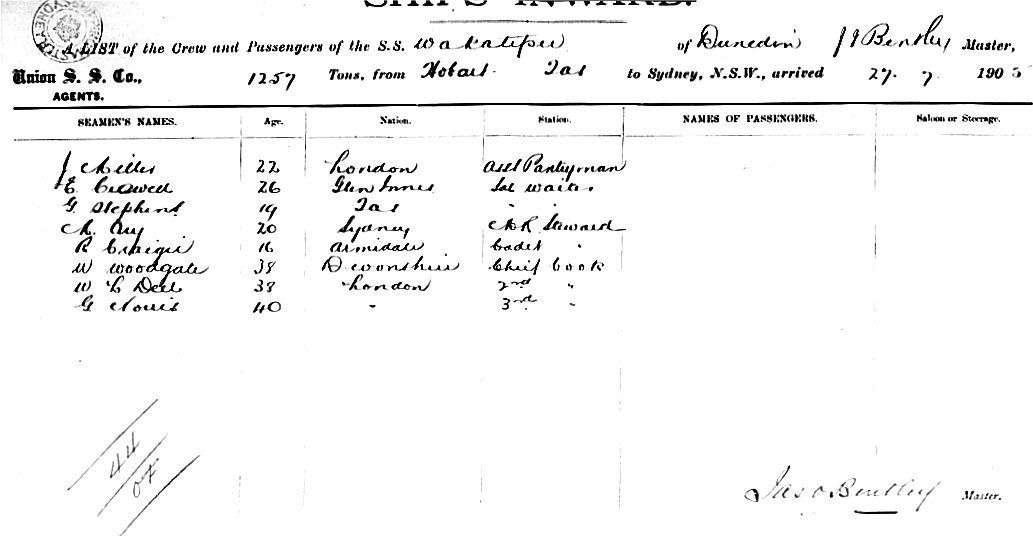 SHIP'S INWARD.
A LIST of the Crew and Passengers of the S.S. Wakatipu of Dunedin J Bentley Master,
Union S. S. Co., AGENTS. 1257 Tons, from Hobart Tas to Sydney, N.S.W., arrived 27. 7 1905
SEAMEN'S NAMES. Age. Nation. Station. NAMES OF PASSENGERS. Saloon or Steerage.
J Miller 22 London Asst Pantryman
E 26 Glen Innes Sal Waiter
G. Stephens 19 Tas " "
20 Sydney Steward
R Craigie 16 Armidale Cadet "
W Woodgate 38 Devonshire Chief Cook
W Dell 38 London 2nd "
G Norris 40 " 3rd "
44
Jas Bentley Master.